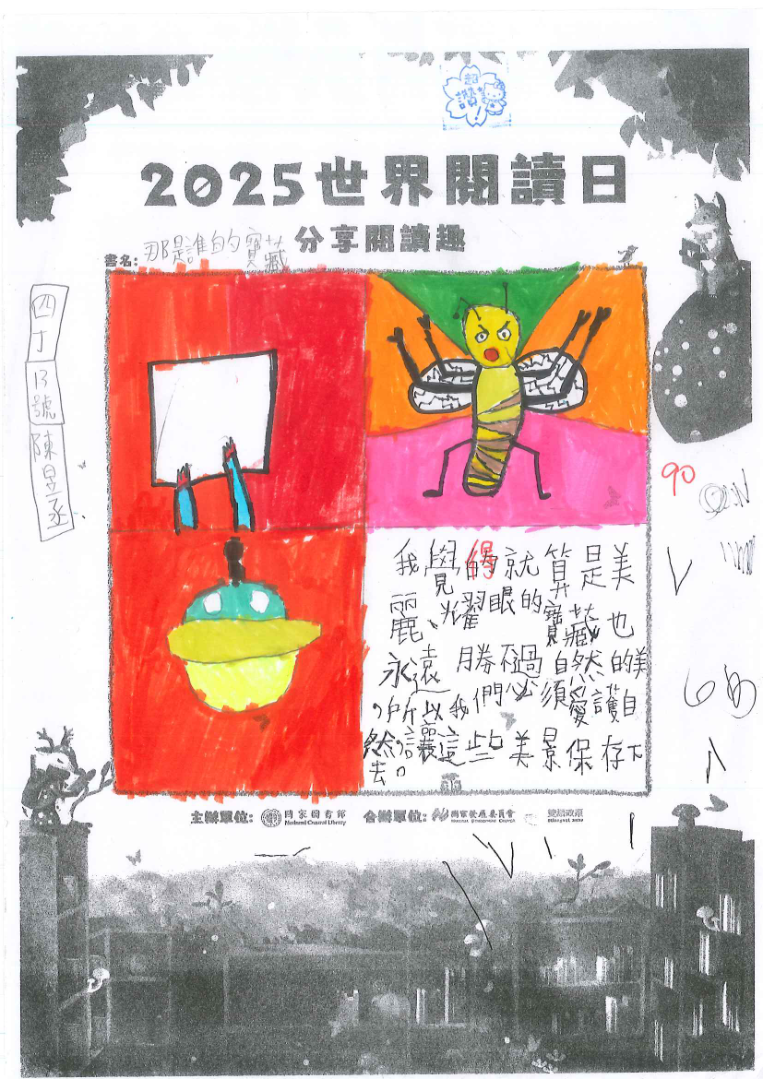 超讚!
2025世界閱讀日
分享閱讀趣
書名:那是誰的寶藏
四丁13號陳昱丞
90
我覺得就算是美
麗、耀眼的寶藏也
永遠勝不過自然的美
,所以我們必須愛護自
然,讓這些美景保存下
去。
主辦單位: 國家圖書館 National Central Library 合辦單位: 國家發展委員會
雙語政策